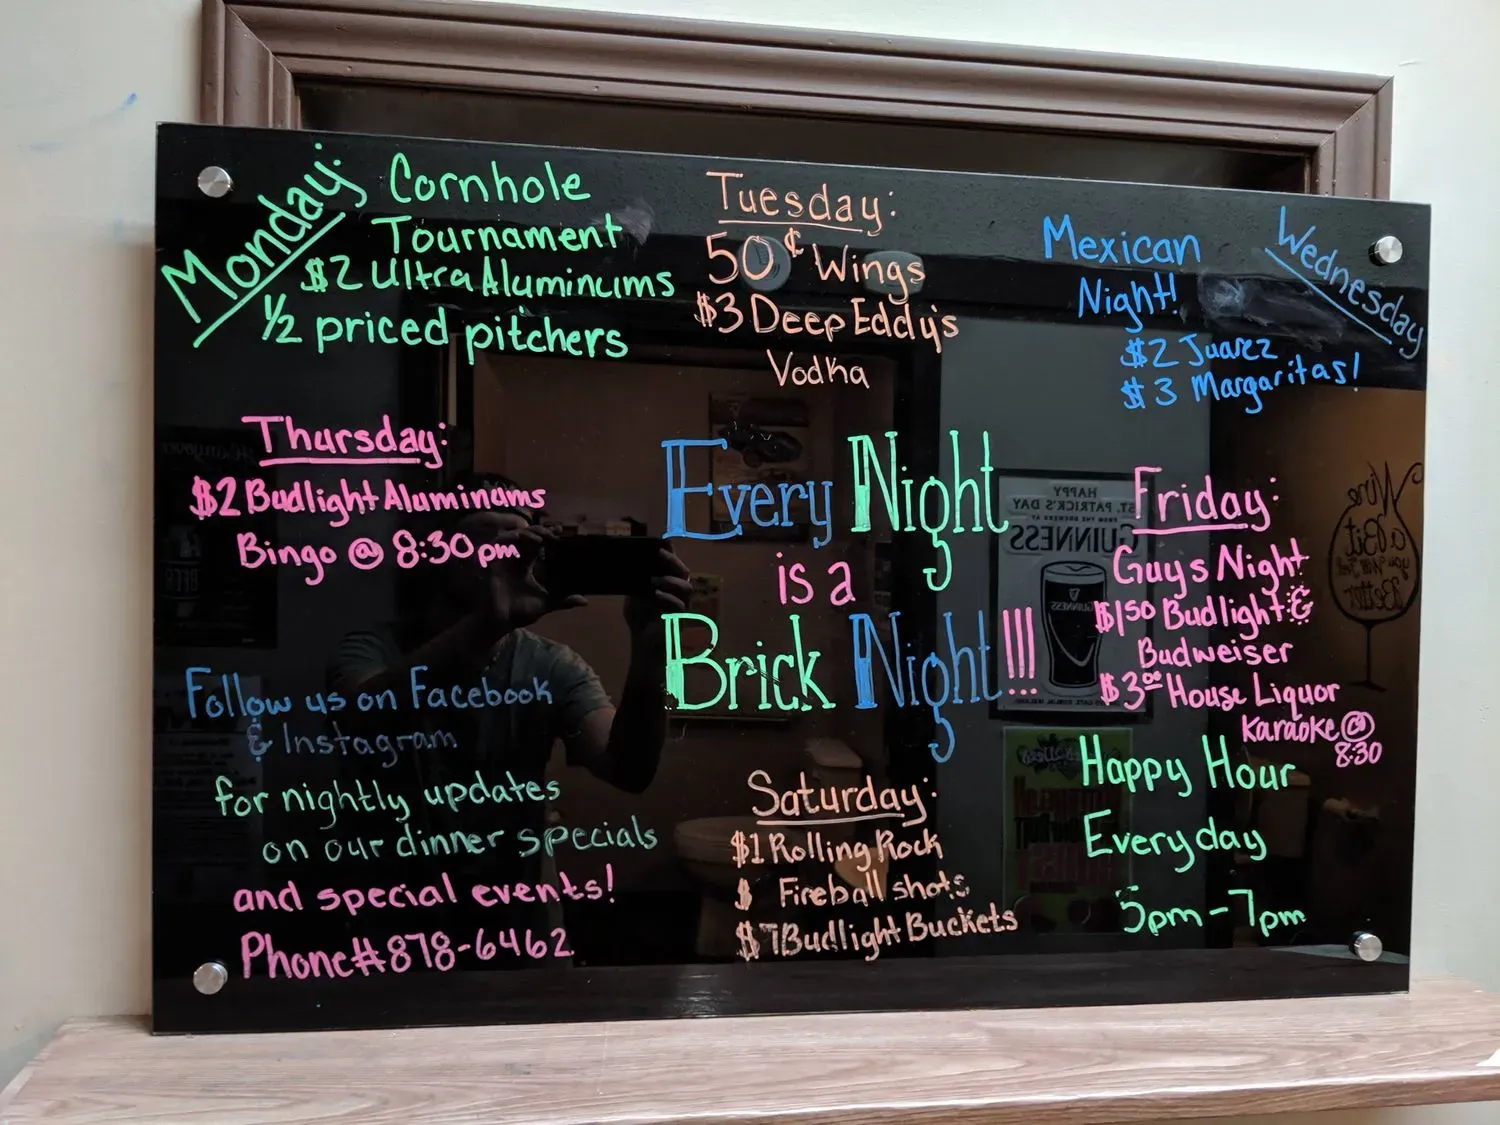 Monday:
Cornhole
Tournament
$2 Ultra Aluminums
1/2 priced pitchers
Tuesday:
50¢ Wings
$3 Deep Eddy's
Vodka
Wednesday
Mexican
Night!
$2 Juarez
$3 Margaritas!
Thursday:
$2 Budlight Aluminums
Bingo @ 8:30pm
Every Night
is a
Brick Night!!!
Friday:
Guys Night
$1.50 Budlight &
Budweiser
$3.00 House Liquor
Karaoke @
8:30
Follow us on Facebook
& Instagram
for nightly updates
on our dinner specials
and special events!
Phone# 878-6462
Saturday:
$1 Rolling Rock
$ Fireball shots
$7 Budlight Buckets
Happy Hour
Everyday
5pm-7pm
HAPPY
ST. PATRICK'S DAY
GUINNESS
GUINNESS
Wine
a Bit
you'll Feel
Better